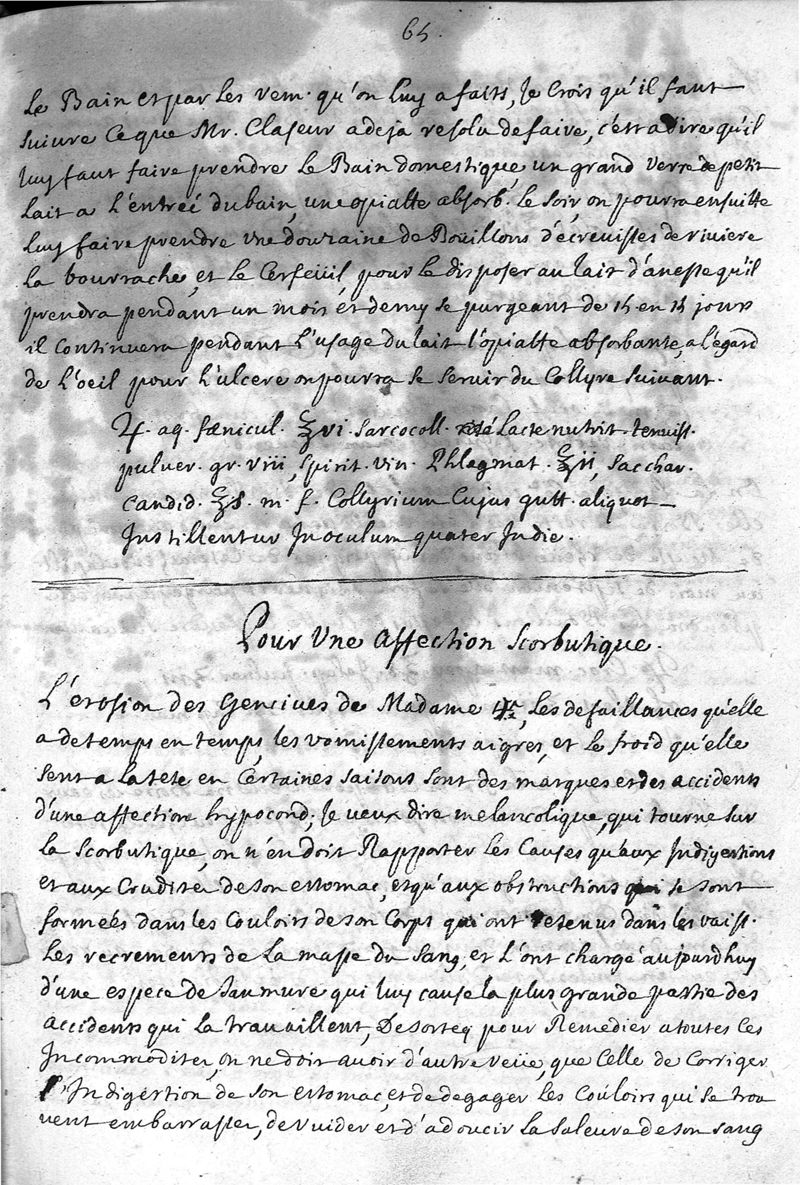 65.
Le Bain et par les rem. qu'on luy a faits, Je Crois qu'il faut
suivre Ce que Mr. Claseur a deja resolu de faire, c'est a dire qu'il
luy faut faire prendre Le Bain domestique un grand verre de petit
lait a L'entreé du bain, une opiatte absorb. le soir, on pourra ensuitte
luy faire prendre une douzaine de Boüillons d'écrevisses de riviere
la bourrache, et le Cerfeüil, pour le disposer au lait d'anesse qu'il
prendra pendant un mois et demy se purgeant de 15 en 15 jours
il Continuera pendant L'usage du lait l'opiatte absorbante, a l'égard
de L'oeil pour L'ulcere on pourra se servir du Collyre suivant.
♃. aq. fœnicul. ℥vi. sarcocoll. Lacte nutrit. tenuiss.
pulver. gr. viii, spirit. vin. Phlegmat. ℥ii, sacchar.
candid. ʒs. m. f. Collyrium Cujus gutt. aliquot
Instillentur In oculum quater In die.
Pour Une Affection Scorbutique.
L'erosion des Gencives de Madame ***, Les defaillances qu'elle
a de temps en temps, les vomissements aigres, et le froid qu'elle
sent a la tete en Certaines saisons sont des marques et des accidents
d'une affection hypocond; Je veux dire melancolique, qui tourne sur
la scorbutique, on n'en doit Rapporter les Causes qu'aux Indigestions
et aux Crudités de son estomac, et qu'aux obstructions qui se sont
formeés dans les Couloirs de son Corps qui ont retenus dans les vaiss.
Les recrements de La masse du sang, et L'ont chargé aujourdhuy
d'une espece de Saumure qui luy cause la plus grande partie des
accidents qui La travaillent, De sorteq pour Remedier a toutes Ces
Incommoditer, on ne doit avoir d'autre veüe, que Celle de Corriger
l'Indigestion de son estomac, et de degager Les Couloirs qui se trou
vent embarrasser, de vuider et d'adoucir la saleure de son sang